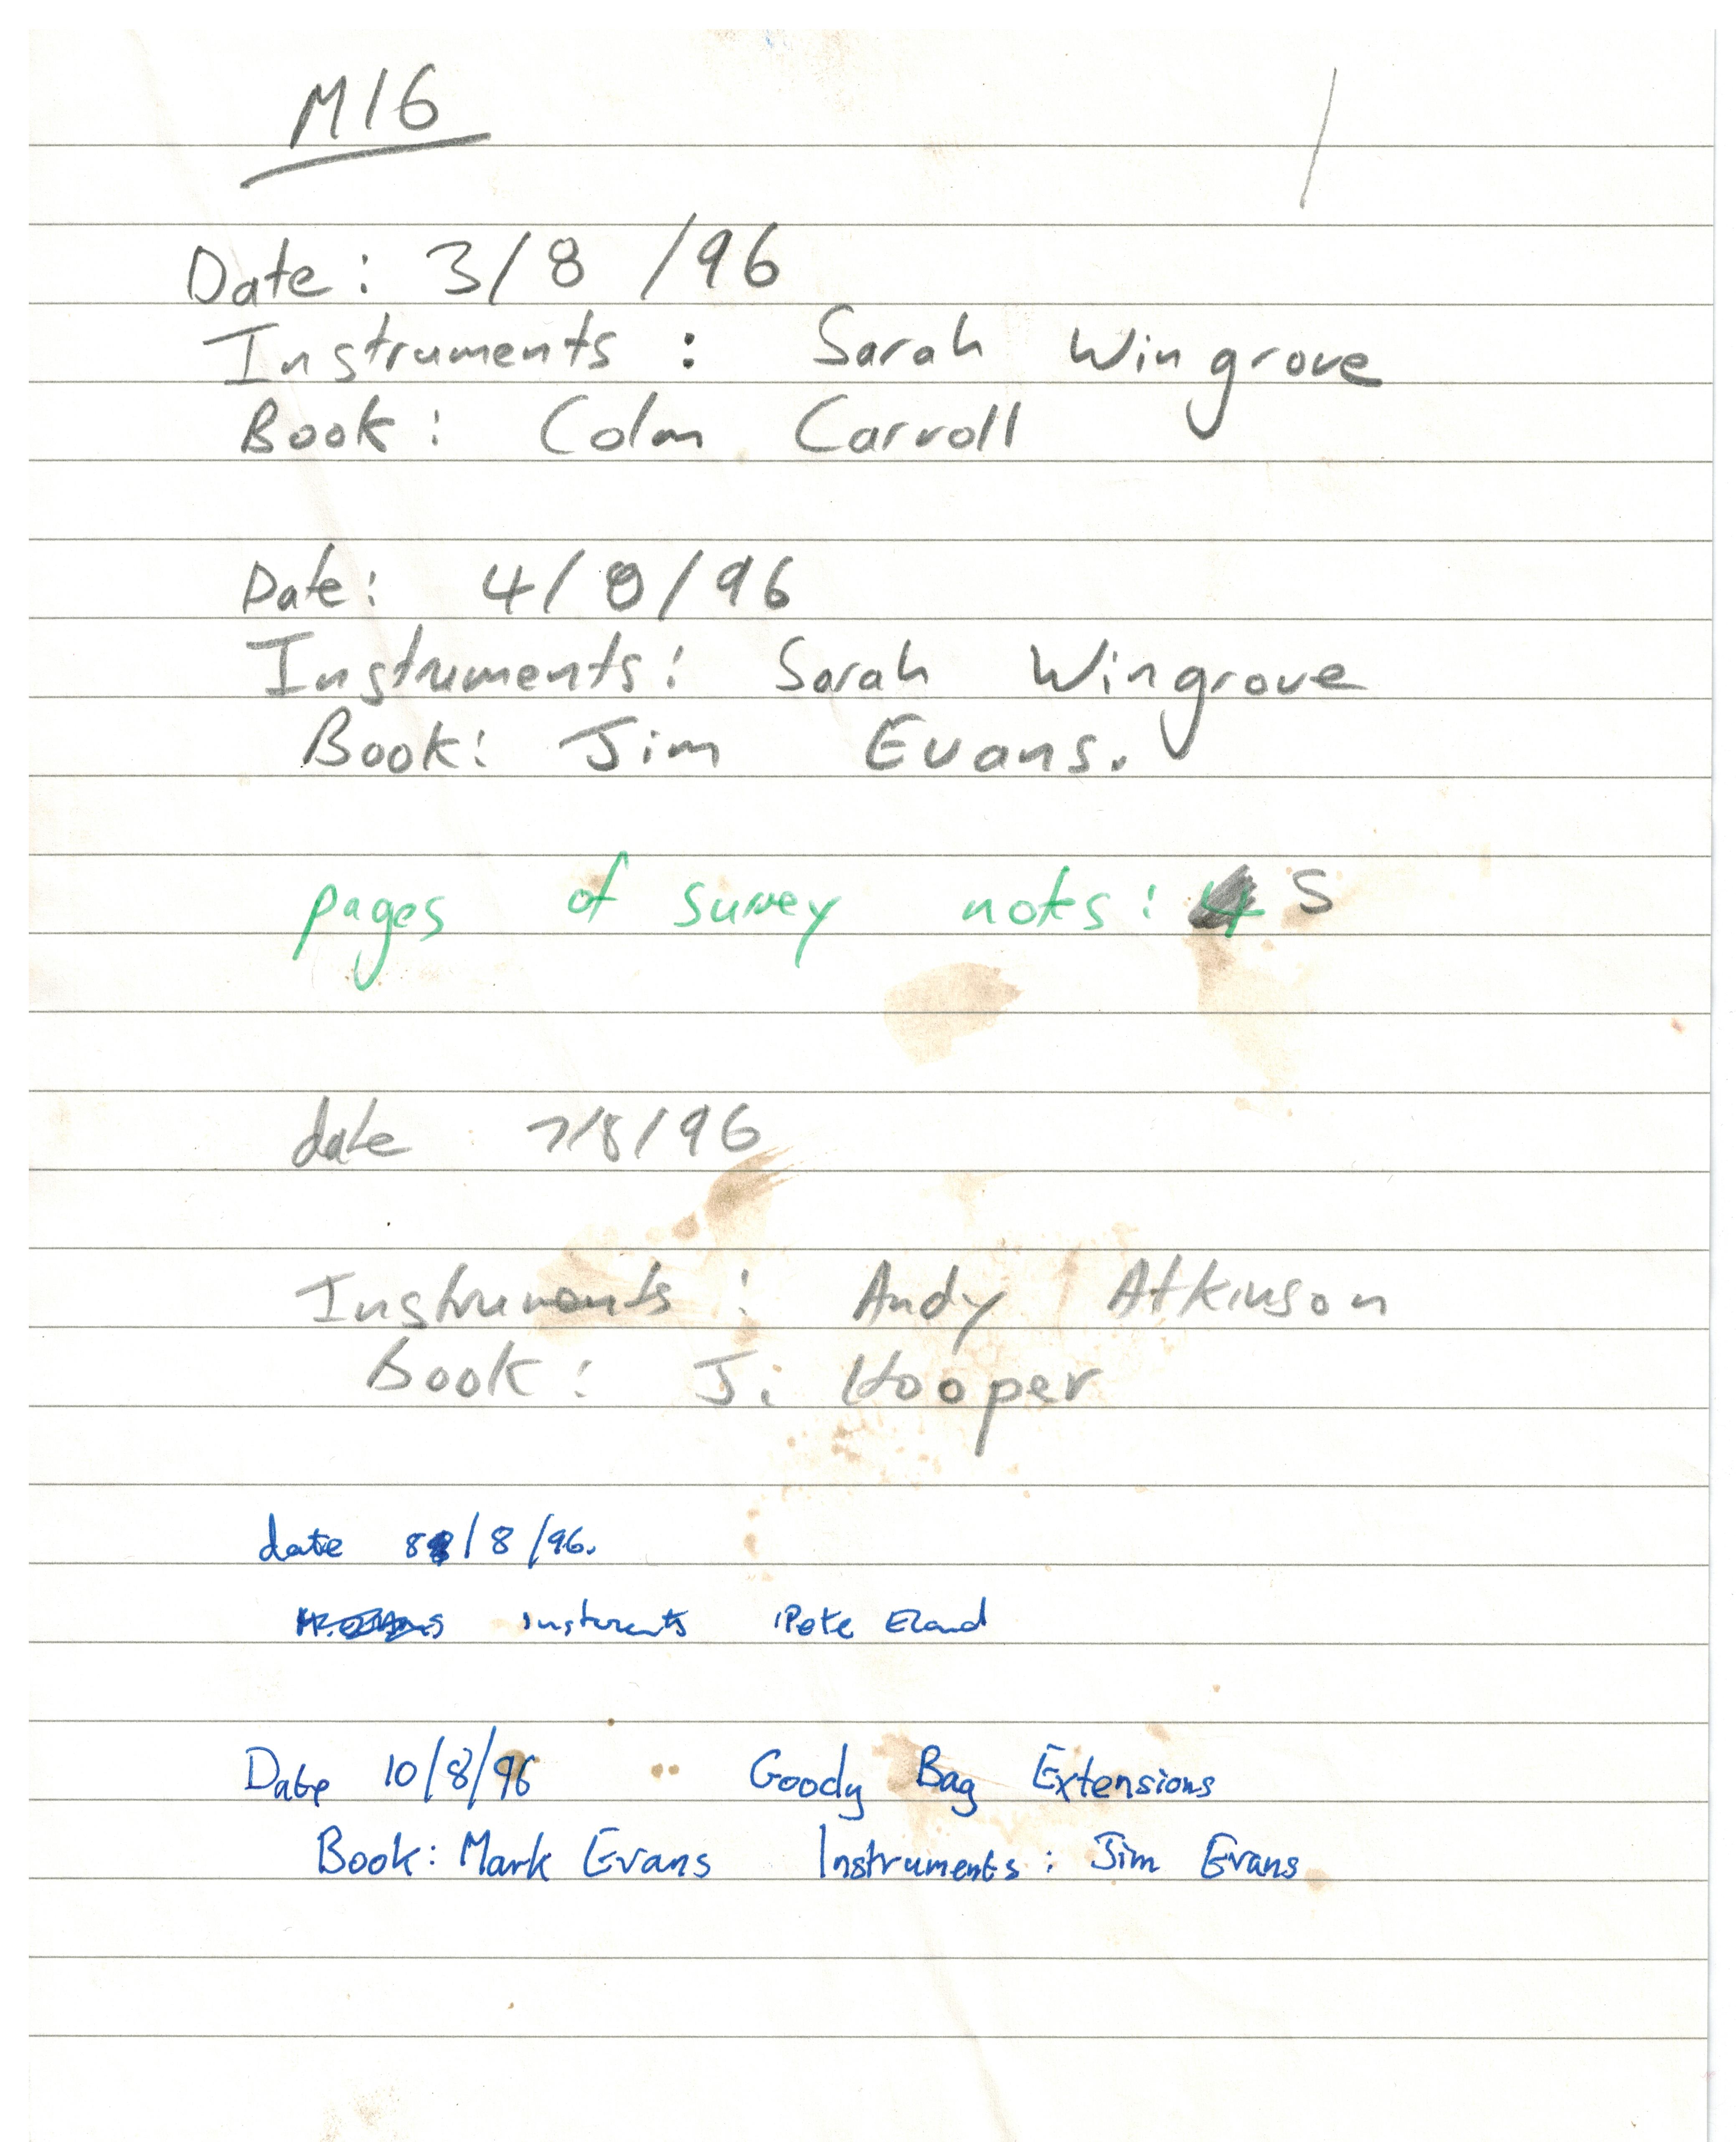 M16
Date: 3/8/96
Instruments: Sarah Wingrove
Book: Colm Carroll
Date: 4/8/96
Instruments: Sarah Wingrove
Book: Jim Evans.
pages of survey notes: 4 5
date 7/8/96
Instruments: Andy Atkinson
Book: J. Hooper
date 8/8/96.
instruments Pete Eland
Date 10/8/96 Goody Bag Extensions
Book: Mark Evans Instruments: Jim Evans